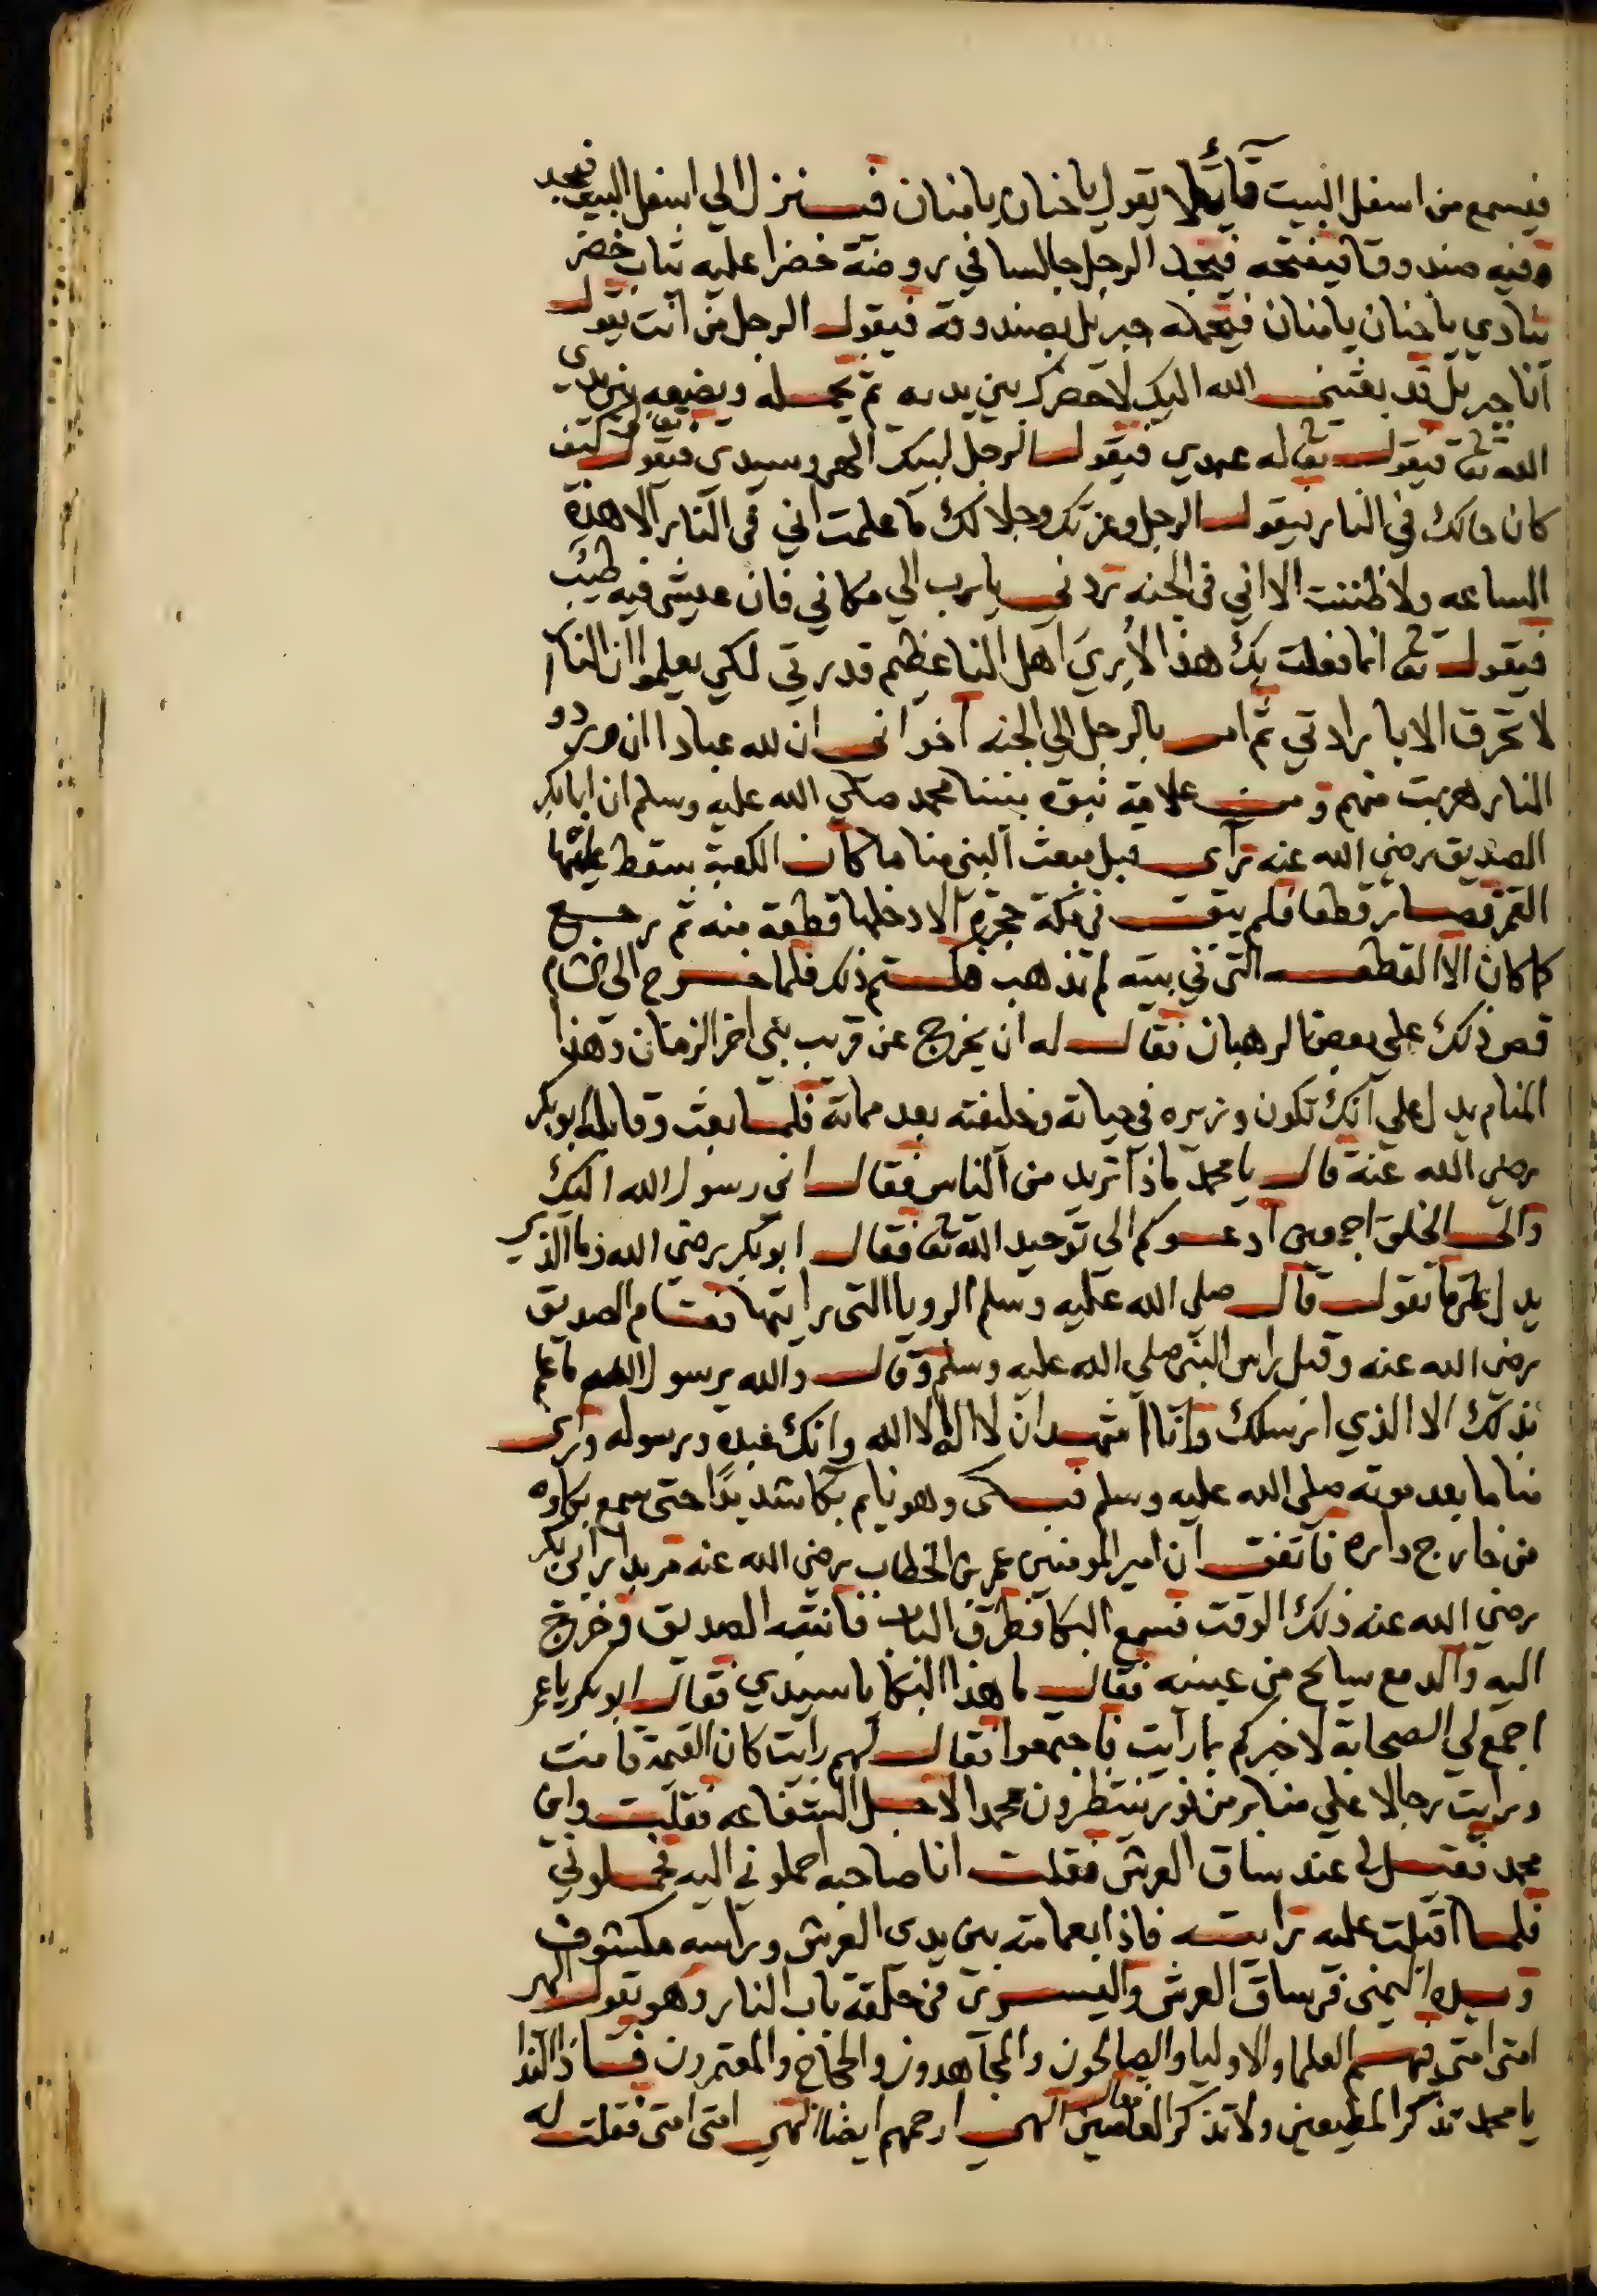 فيسمع من اسفل البيت قائلا يقول يا حنان يا منان فينزل الي اسفل البيت فيجد
فيه صندوقا فيفتحه فيجد الرجل جالسا في روضة خضرا عليه ثياب خضر
ينادي يا حنان يا منان فيحمله جبريل بصندوقه فيقول الرجل من انت يقول
انا جبريل قد بعثني الله اليك لاحضرك بين يديه ثم يحمله ويضعه بين يدي
الله تعا فيقول تعا له عبدي فيقول الرجل لبيك الهي وسيدي فيقول كيف
كان حالك في النار فيقول الرجل وعزتك وجلالك ما علمت اني في النار الا هذه
الساعه ولا ظننت الا اني في الجنه تردني يا رب الي مكاني فان عيشي فيه طيب
فيقول تعا انما فعلت بك هذا لأري اهل النا عظيم قدرتي لكي يعلموا ان النار
لا تحرق الا بارادتي ثم امر بالرجل الي الجنه اخواني ان لله عبادا ان وردو
النار هربت منهم ومن علامة نبوة نبينا محمد صلي الله عليه وسلم ان ابا بكر
الصديق رضي الله عنه رأى قبل مبعث النبي مناما كان الكعبة سقط عليها
القمر فصار قطعا فلم يبق في مكة حجرة الا دخلها قطعة منه ثم رجع
كما كان الا القطعه التي في بيته لم تذهب فكتم ذلك فلما خرج الى الشام
قص ذلك علي بعض الرهبان فقال له ان يخرج عن قريب نبي اخر الزمان وهذا
المنام يدل علي انك تكون وزيره في حياته وخليفته بعد مماته فلما بعث وقابله ابو بكر
رضي الله عنه قال يا محمد ماذا تريد من الناس فقال اني رسول الله اليك
والى الخلق اجمعين ادعوكم الى توحيد الله تعا فقال ابو بكر رضى الله فما الذي
يدل على ما تقول قال صلى الله عليه وسلم الرويا التى رايتها فقام الصديق
رضى الله عنه وقبل راس النبى صلى الله عليه وسلم وقال والله يرسول الله ما علم
بذلك الا الذي ارسلك وانا اشهد ان لا اله الا الله وانك عبده ورسوله ورأى
مناما بعد موته صلى الله عليه وسلم فبكى وهو نايم بكا شديدًا حتى سمع بكاوه
من خارج داره فاتفق ان امير المومنين عمر بن الخطاب رضي الله عنه مر بدار ابي بكر
رضي الله عنه ذلك الوقت فسمع البكا فطرق الباب فانتبه الصديق فخرج
اليه والدمع سايح من عينيه فقال ما هذا البكا يا سيدي فقال ابو بكر يا عمر
اجمع لي الصحابة لاخبركم بما رأيت فاجتمعوا فقال لهم رايت كان القيمة قامت
ورايت رجالا علي منابر من نور ينتظرون محمدا لاجل الشفاعه فقلت واين
محمد فقيل لي عند ساق العرش فقلت انا صاحبه احملوني اليه فحملوني
فلما اقبلت عليه رايته فاذا بعمامته بين يدى العرش وراسه مكشوف
وبيده اليمنى في ساق العرش واليسرى في حلقة باب النار وهو يقول الهى
امتى امتى فيهم العلما والاوليا والصالحون والمجاهدون والحجاج والمعتمرون فاذا الندا
يا محمد تذكر المطيعين ولا تذكر العاصين فقال الهي ارحمهم ايضا الهي امتى امتى فقلت له